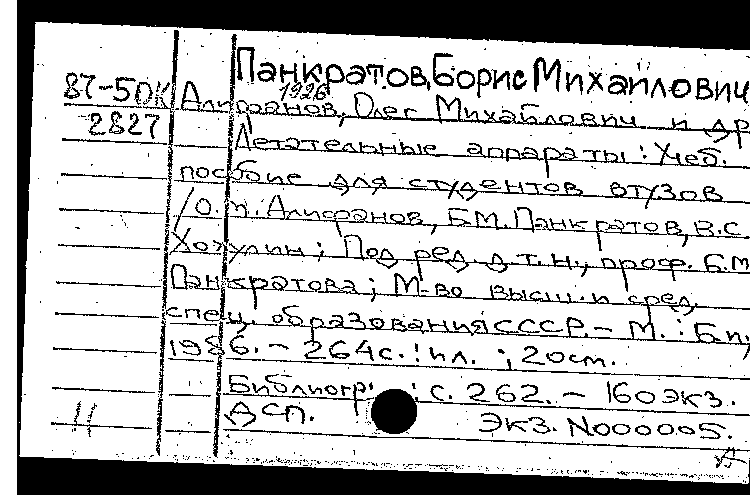 Панкратов, Борис Михайлович
1926
87-5ДК Алифанов, Олег Михайлович и др
2827
Летательные аппараты: Учеб.
пособие для студентов втузов
/О.М. Алифанов, Б.М. Панкратов, В.С.
Хохулин; Под ред. д.т.н., проф. Б.М
Панкратова; М-во высш. и сред.
спец. образования СССР. - М. : Б.и,
1986. - 264с. : ил. ; 20см.
Библиогр. : с. 262. - 160 экз.
11 ДСП. Экз. N000005.